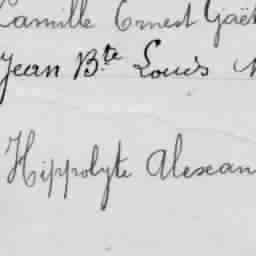 Camille Ernest Gaët
Jean Bte Louis
Hippolyte Alexan